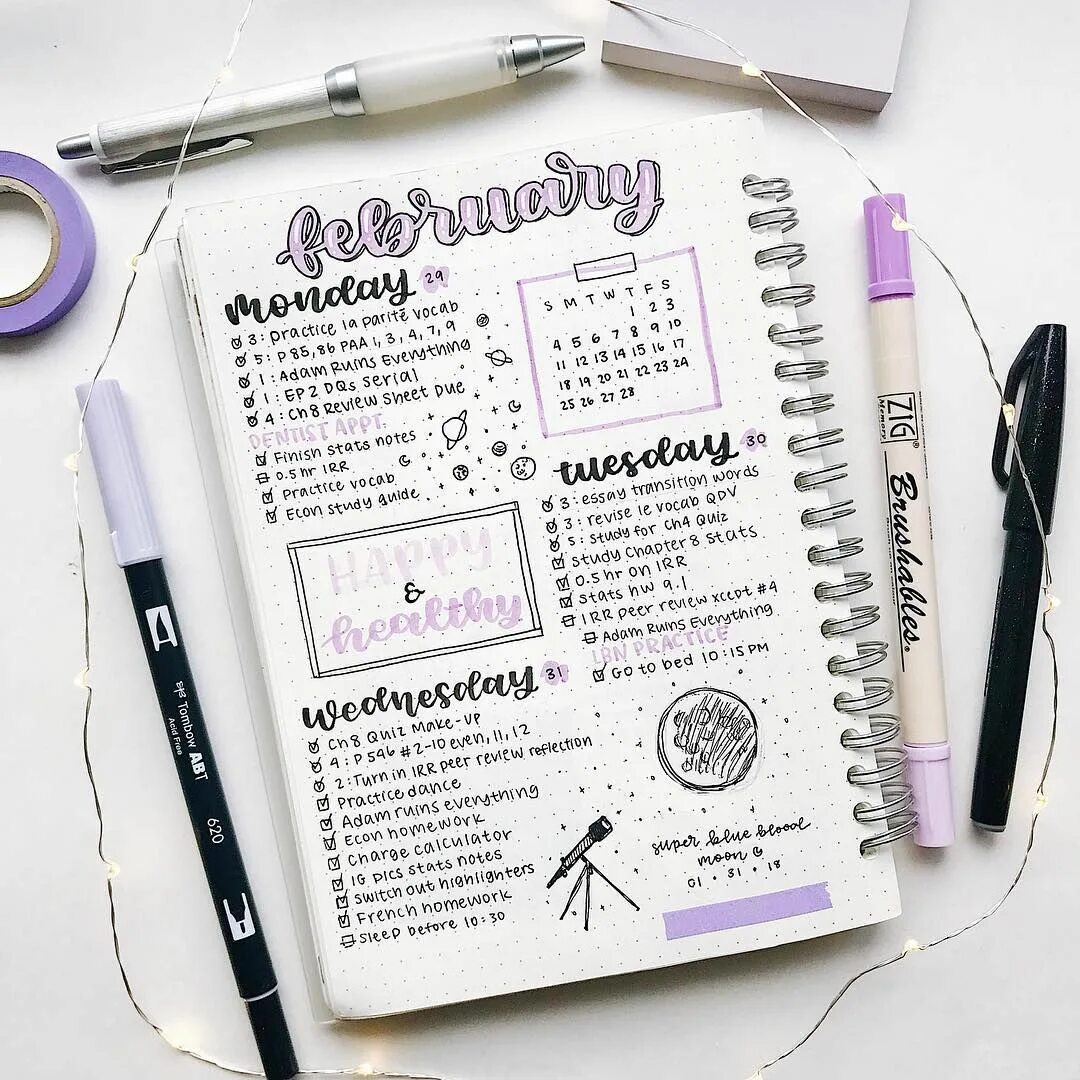 february
monday 29
3: practice la parité vocab
5: P 85, 86 PAA 1, 3, 4, 7, 9
1: Adam Ruins Everything
1: EP 2 DQs Serial
4: Ch 8 Review Sheet Due
DENTIST APPT.
Finish stats notes
0.5 hr IRR
Practice vocab
Econ study guide
S M T W T F S
1 2 3
4 5 6 7 8 9 10
11 12 13 14 15 16 17
18 19 20 21 22 23 24
25 26 27 28
HAPPY
&
healthy
tuesday 30
3: essay transition words
3: revise le vocab QDV
5: study for Ch4 Quiz
study Chapter 8 stats
0.5 hr on IRR
stats hw 9.1
IRR peer review xcept #4
Adam Ruins Everything
LBN PRACTICE
Go to bed 10:15 PM
wednesday 31
Ch 8 Quiz Make-up
4: P 546 #2-10 even, 11, 12
2: Turn in IRR peer review reflection
Practice dance
Adam ruins everything
Econ homework
Charge calculator
IG pics stats notes
Switch out highlighters
French homework
Sleep before 10:30
super blue blood
moon
01 • 31 • 18
Tombow ABT
Acid Free
620
ZIG
Memory
®
Brushables.